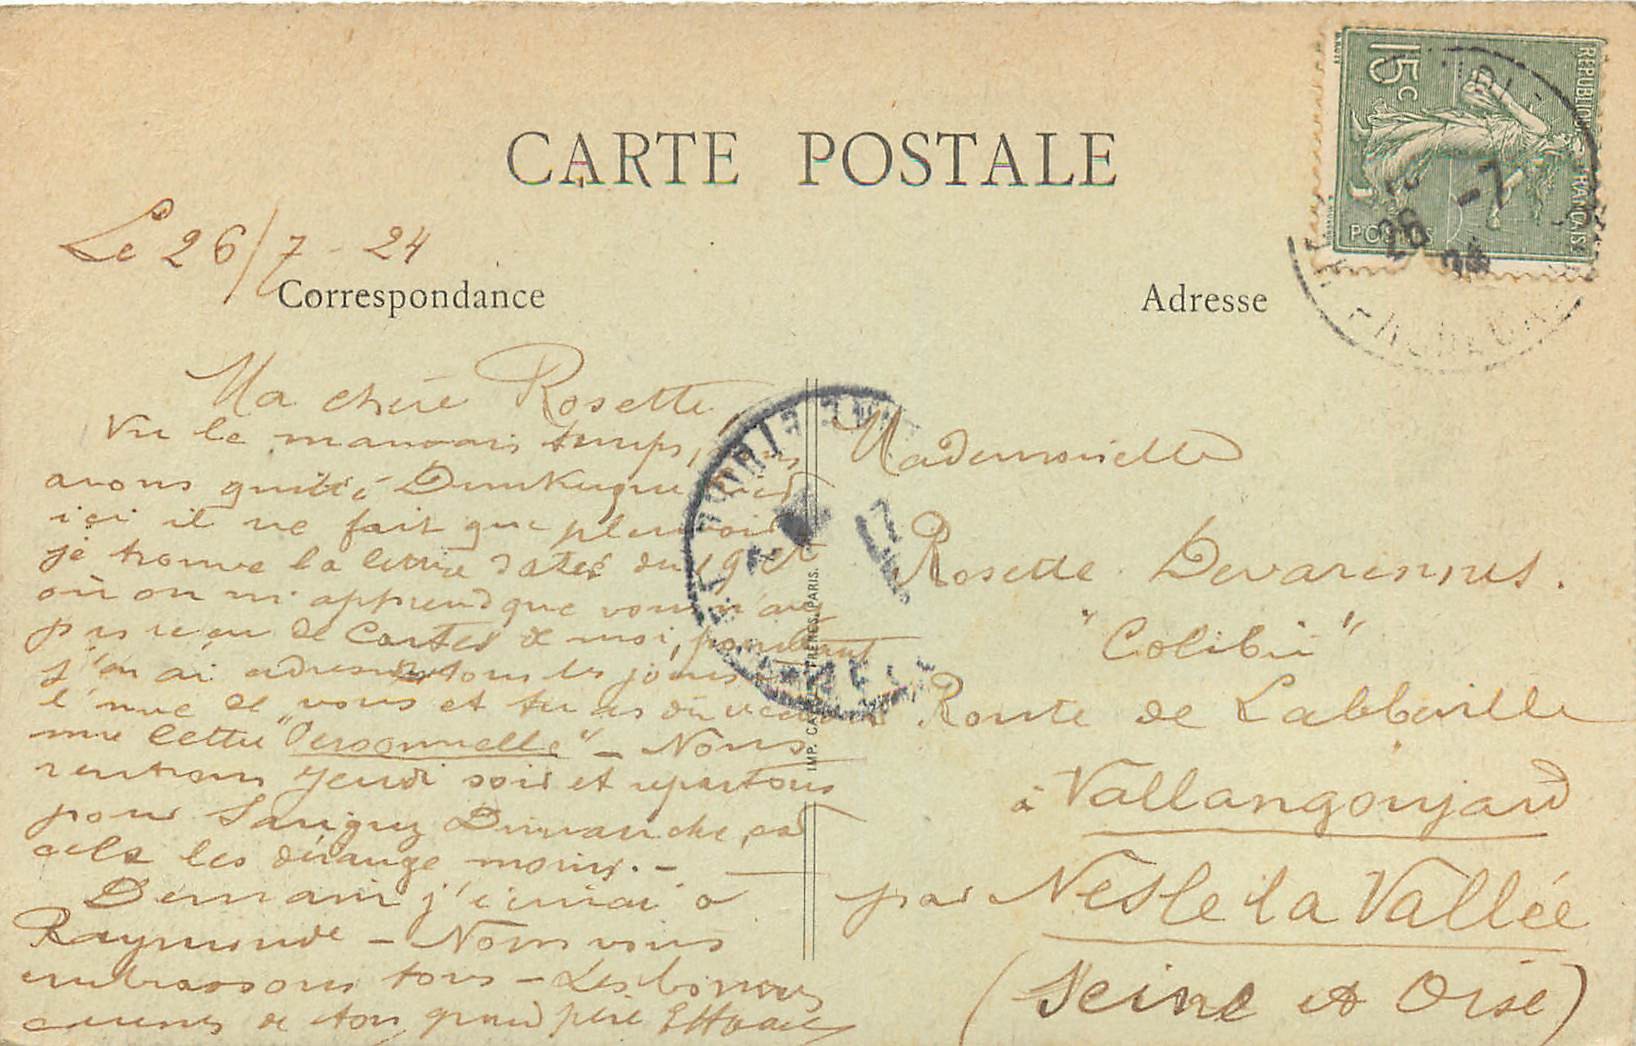 CARTE POSTALE
Le 26/7 - 24
Correspondance
Ma chère Rosette
Vu le mauvais temps,
avons quitté Dunkerque
ici il ne fait que pleuvoir
je trouve la lettre datée du 19 et
où on m'apprend que vous n'avez
pas reçu de Cartes de moi, pourtant
j'en ai adressé tous les jours
l'une de vous et tu as dû recevoir
une lettre "Personnelle" - Nous
rentrons Jeudi soir et repartons
pour Savigny Dimanche,
cela les dérange moins. -
Demain j'écrirai à
Raymonde - Nous vous
embrassons tous - Les
de ton grand père
Adresse
Mademoiselle
Rosette Devarennes.
"Colibri"
Route de Labbeville
à Vallangoujard
par Nesle la Vallée
(Seine et Oise)
IMP. FRÈRES, PARIS.
15c
REPUBLIQUE FRANÇAISE
POSTES
26 -7
24